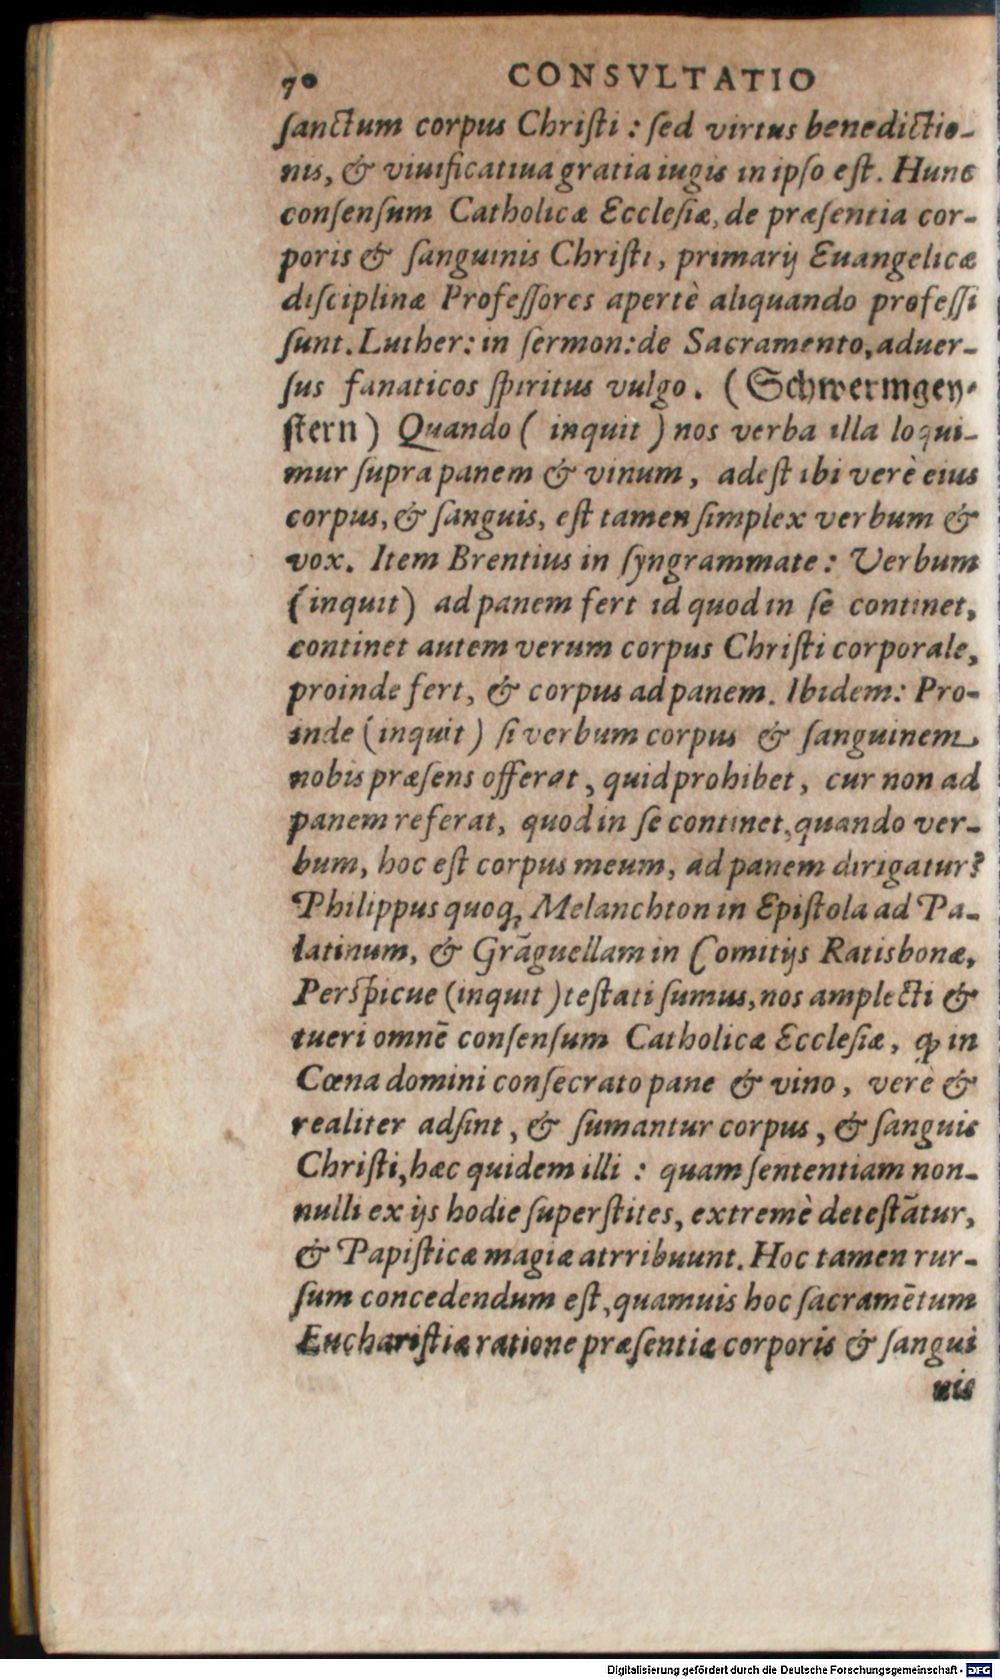 70 CONSVLTATIO
ſanctum corpus Chriſti : ſed virtus benedictio-
nis, & viuificatiua gratia iugis in ipſo eſt. Hunc
conſenſum Catholicæ Eccleſiæ, de præſentia cor-
poris & ſanguinis Chriſti, primarij Euangelicæ
diſciplinæ Profeſſores apertè aliquando profeſſi
ſunt. Luther: in ſermon: de Sacramento, aduer-
ſus fanaticos ſpiritus vulgo. (Schwermgey-
ſtern) Quando ( inquit ) nos verba illa loqui-
mur ſupra panem & vinum, adeſt ibi verè eius
corpus, & ſanguis, eſt tamen ſimplex verbum &
vox. Item Brentius in ſyngrammate : Verbum
(inquit) ad panem fert id quod in ſe continet,
continet autem verum corpus Chriſti corporale,
proinde fert, & corpus ad panem. Ibidem: Pro-
inde (inquit) ſi verbum corpus & ſanguinem
nobis præſens offerat, quid prohibet, cur non ad
panem referat, quod in ſe continet, quando ver-
bum, hoc eſt corpus meum, ad panem dirigatur?
Philippus quoq; Melanchton in Epiſtola ad Pa-
latinum, & Grāguellam in Comitijs Ratisbonæ,
Perſpicue (inquit) teſtati ſumus, nos amplecti &
tueri omnē conſenſum Catholicæ Eccleſiæ, ꝙ in
Cœna domini conſecrato pane & vino, verè &
realiter adſint, & ſumantur corpus, & ſanguis
Chriſti, hæc quidem illi : quam ſententiam non-
nulli ex ijs hodie ſuperſtites, extremè deteſtātur,
& Papiſticæ magiæ atrribuunt. Hoc tamen rur-
ſum concedendum eſt, quamuis hoc ſacramētum
Euchariſtiæ ratione præſentiæ corporis & ſangui
nis
Digitalisierung gefördert durch die Deutsche Forschungsgemeinschaft - DFG